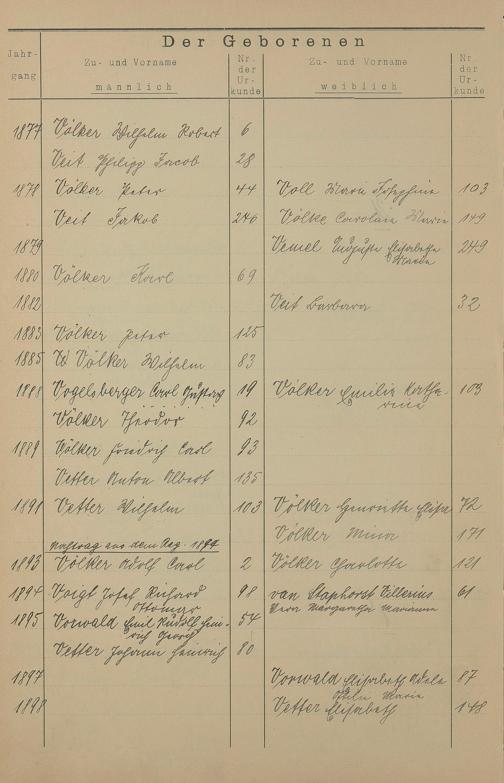 Der Geborenen
Jahr-
gang
Zu- und Vorname
männlich
Nr.
der
Ur-
kunde
Zu- und Vorname
weiblich
Nr.
der
Ur-
kunde
1877 Völker Wilhelm Robert 6
Veit Philipp Jacob 28
1878 Völker Peter 44 Voll Maria Josephine 103
Veit Jakob 246 Völke Caroline Marie 149
1879 Auguste Elisabetha 249
1880 Völker Karl 69
1882 Veit Barbara 32
1883 Völker Peter 125
1885 Völker Wilhelm 83
1888 Vogelsberger Carl Gustav 19 Völker Emilie Katha- 103
rina
Völker Theodor 92
1889 Völker Friedrich Carl 93
Vetter Anton Albert 135
1891 Vetter Wilhelm 103 Völker Henriette Elisa 72
Völker Mina 171
Nachtrag aus dem Reg.
1893 Völker Adolf Carl 2 Völker Charlotte 121
1894 Voigt Josef Richard 98 van Staphorst 61
Ottomar Margaretha Marianna
1895 Vorwald Emil Rudolf Hein- 54
rich Georg
Vetter Johann Heinrich 80
1897 Vorwald Elisabeth Adele 87
Marie
1898 Vetter Elisabeth 148